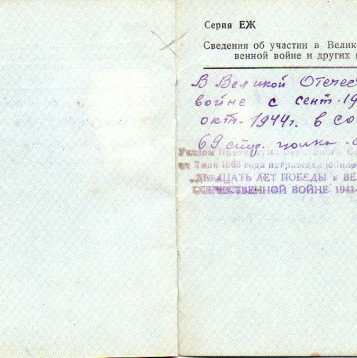 Серия ЕЖ
Сведения об участии в Велик
венной войне и других
В Великой Отечес
войне с сент. 19
окт. 1944г. в со
69 стр. полка
Указом
от 7 мая 1965 года награжден юбил
ДВАДЦАТЬ ЛЕТ ПОБЕДЫ в ВЕ
ОТЕЧЕСТВЕННОЙ ВОЙНЕ 1941-